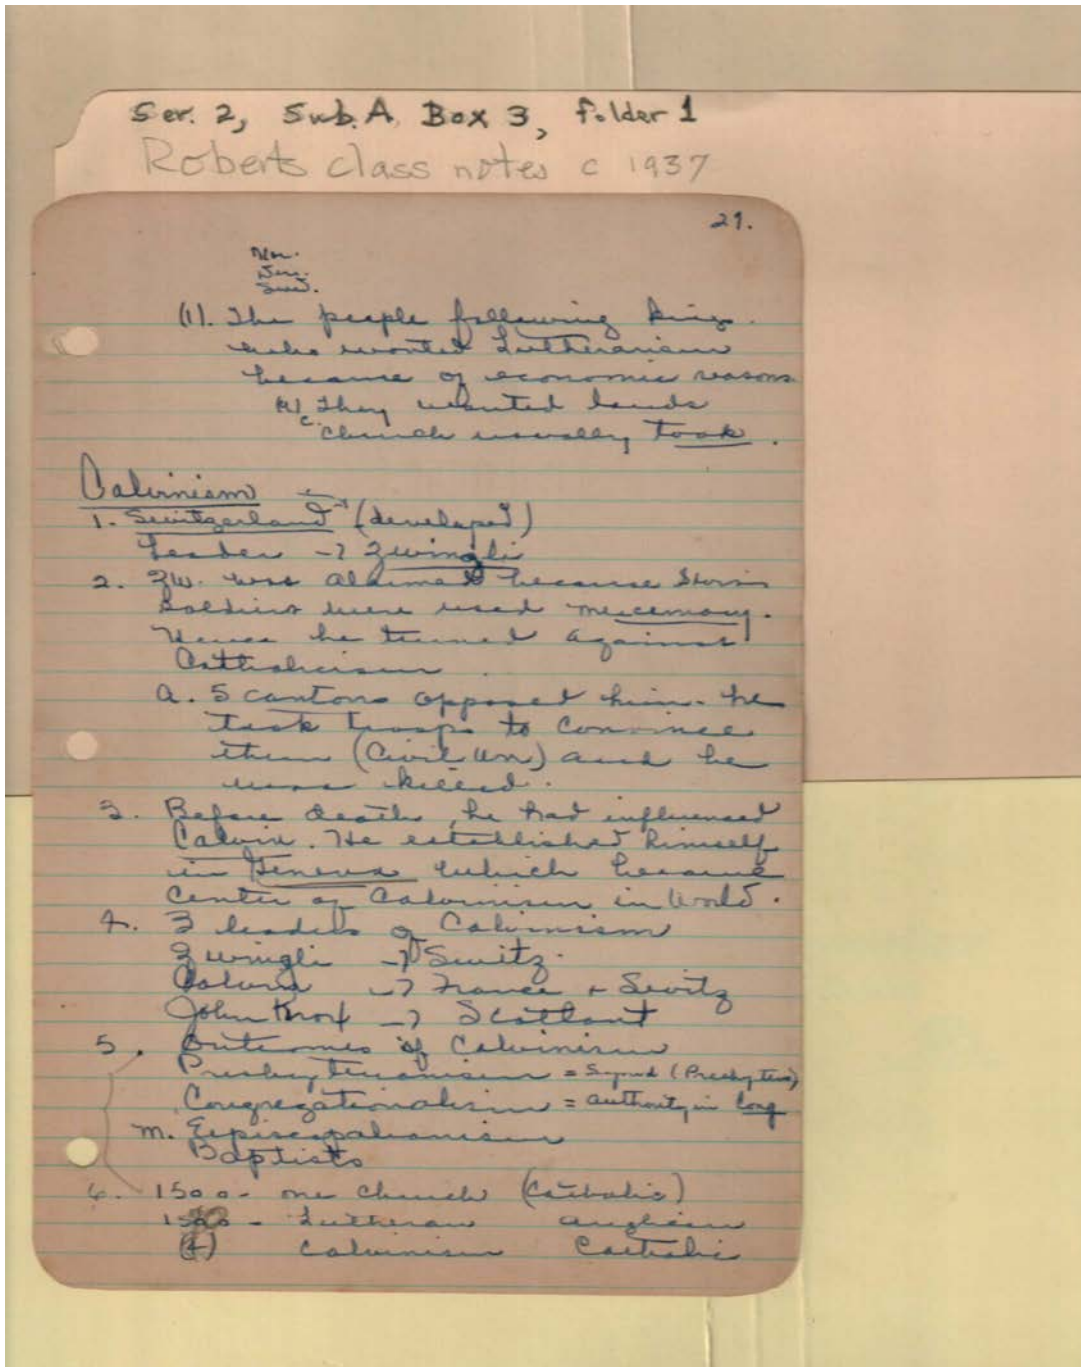 Ser. 2, Sub. A Box 3, folder 1
Roberts class notes c 1937
29.
Nor.
Den.
Swed.
(1). The people following kings
who wanted Lutheranism
because of economic reasons
(a) They wanted lands
c. church usually took.
Calvinism
1. Switzerland (developed)
Leader → Zwingli
2. Zw. was alarmed because Swiss
soldiers were used mercenary.
Hence he turned against
Catholicism.
a. 5 cantons opposed him - he
took troops to convince
them (Civil War) and he
was killed.
3. Before death, he had influenced
Calvin. He established himself
in Geneva which became
center of Calvinism in World.
4. 3 leaders of Calvinism
Zwingli → Switz.
Calvin → France + Switz
John Knox → Scotland
5. Outcomes of Calvinism
Presbyterianism = Synod (Presbyters)
Congregationalism = authority in Cong
m. Episcopalianism
Baptists
6. 1500 - one church (Catholic)
Lutheran Anglican
(4) Calvinism Catholic